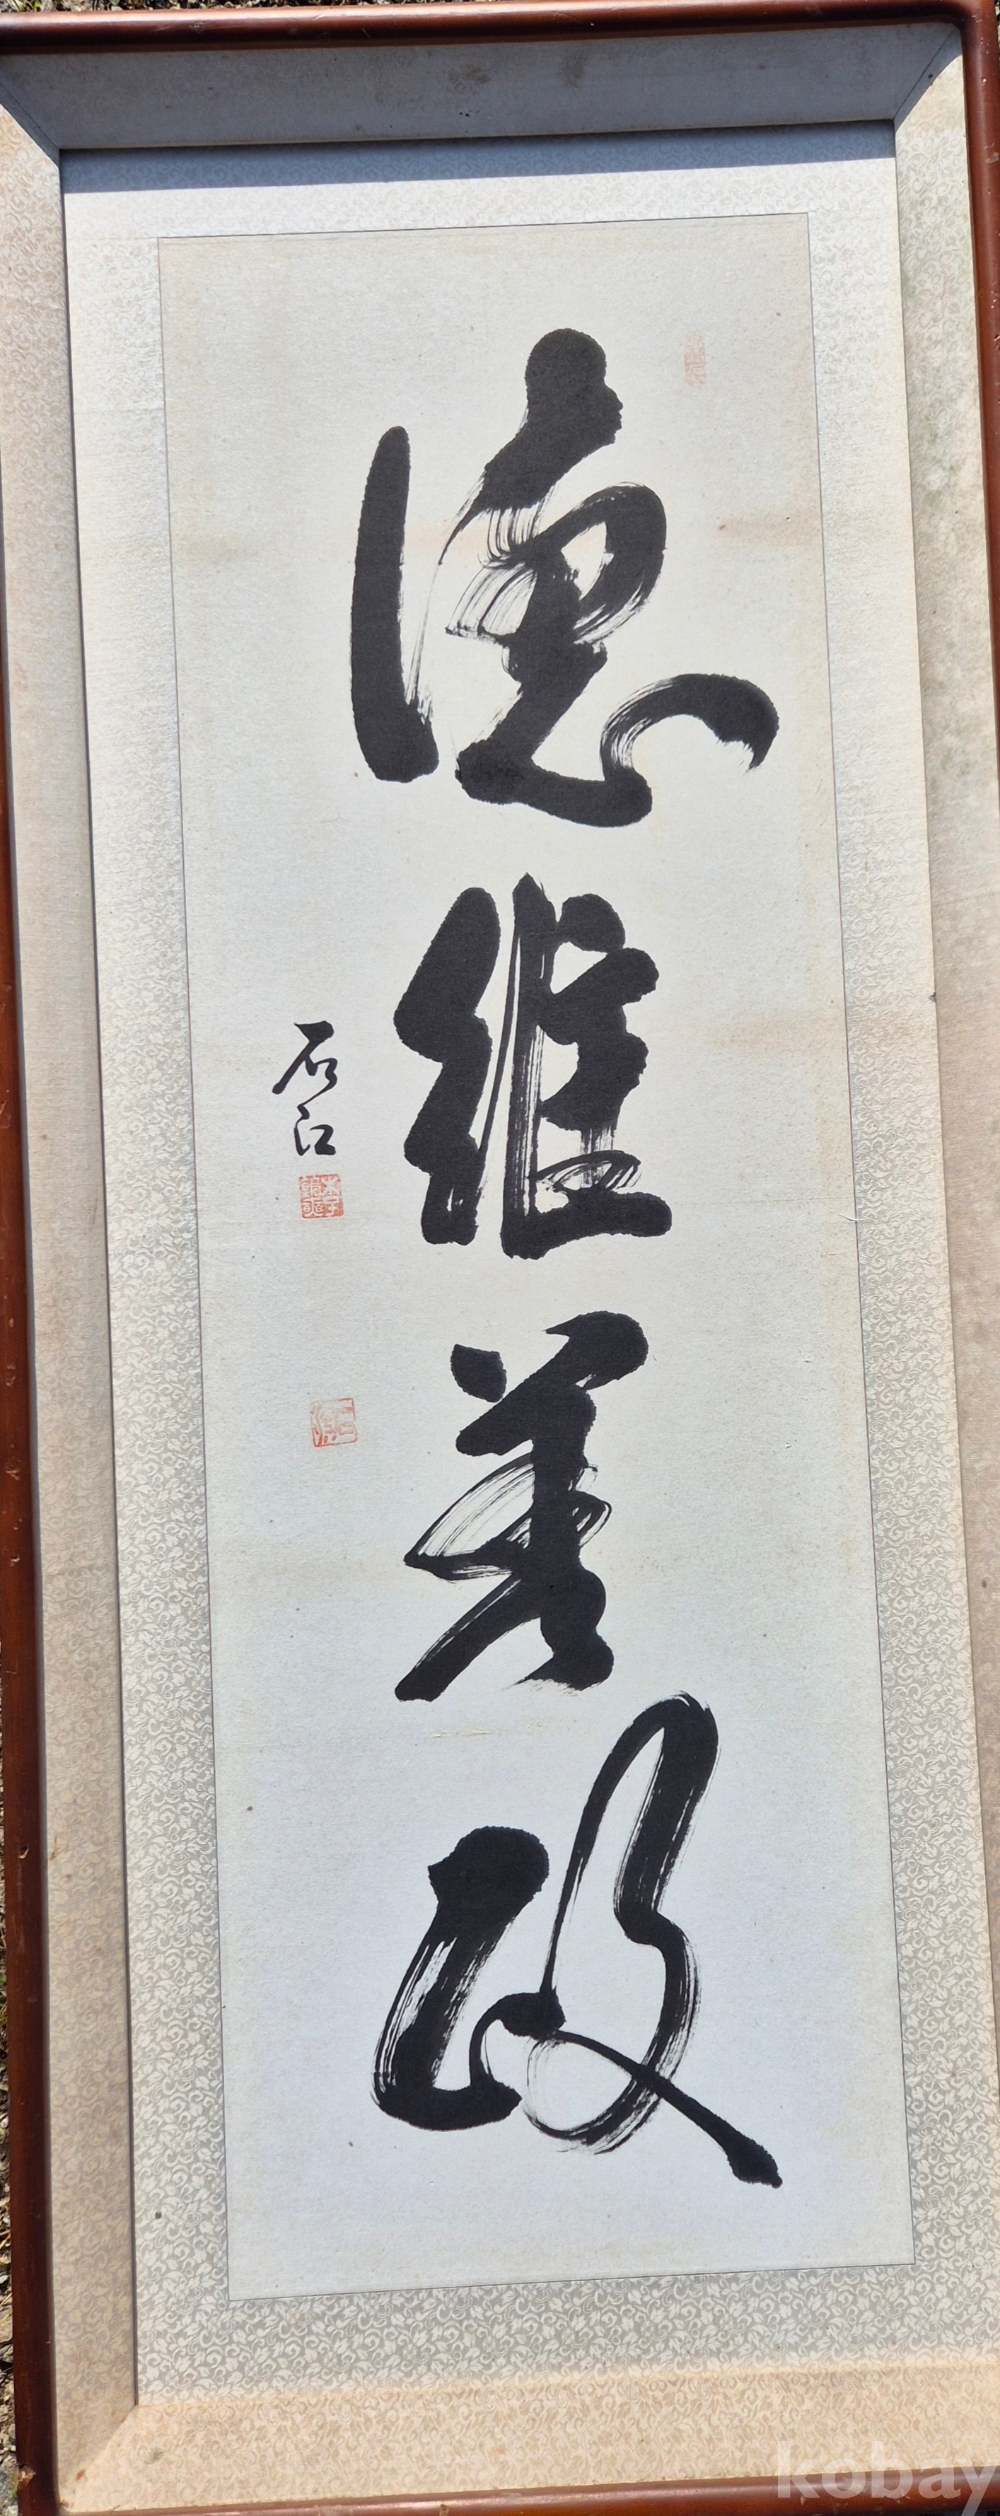 德維善政
石江
kobay